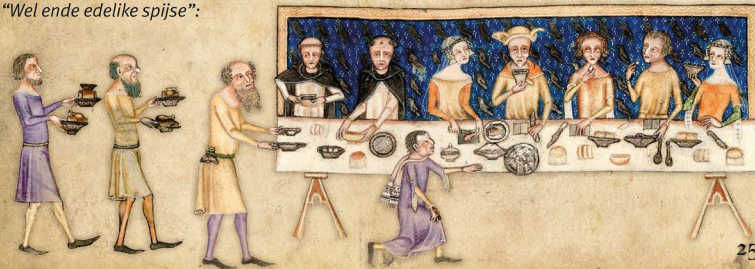 “Wel ende edelike spijse”:
25